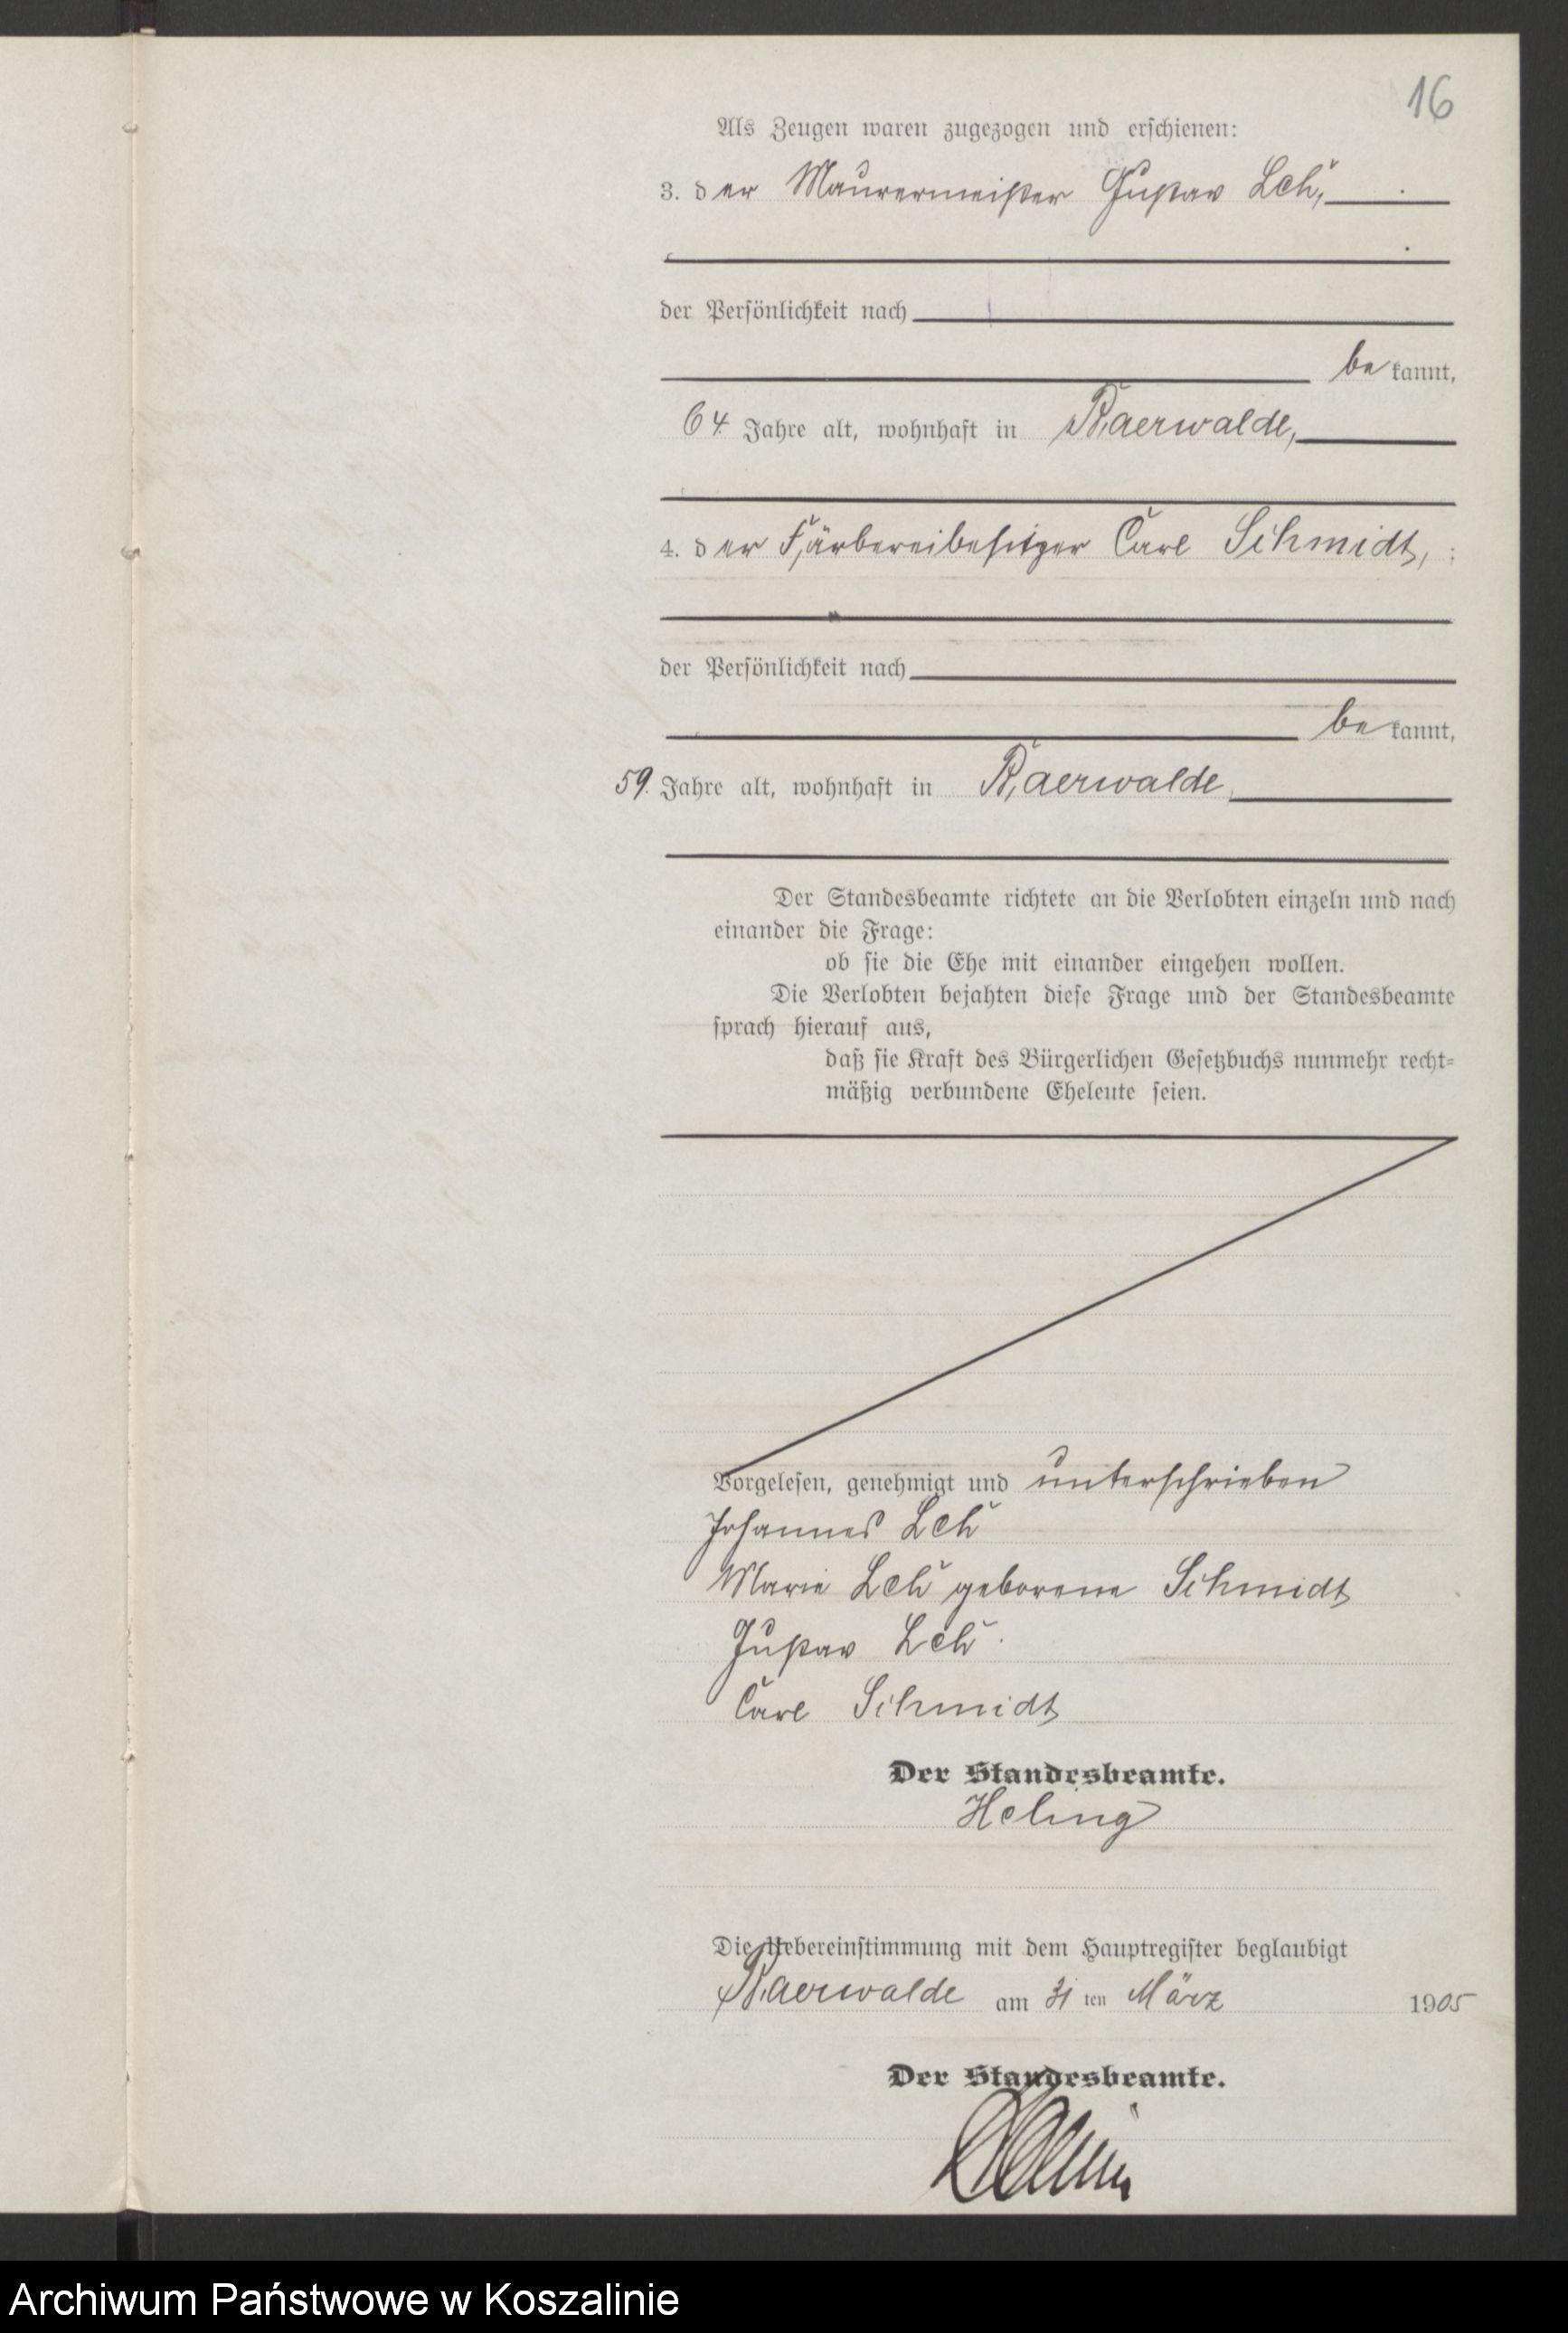 16
Als Zeugen waren zugezogen und erschienen:
3. der Maurermeister Gustav
der Persönlichkeit nach
bekannt,
64 Jahre alt, wohnhaft in Baerwalde,
4. der Färbereibesitzer Carl Schmidt,
der Persönlichkeit nach
bekannt,
59. Jahre alt, wohnhaft in Baerwalde
Der Standesbeamte richtete an die Verlobten einzeln und nach
einander die Frage:
ob sie die Ehe mit einander eingehen wollen.
Die Verlobten bejahten diese Frage und der Standesbeamte
sprach hierauf aus,
daß sie Kraft des Bürgerlichen Gesetzbuchs nunmehr recht-
mäßig verbundene Eheleute seien.
Vorgelesen, genehmigt und unterschrieben
Johannes
Marie geborene Schmidt
Gustav
Carl Schmidt
Der Standesbeamte.
Die Uebereinstimmung mit dem Hauptregister beglaubigt
Baerwalde am 31 ten März 1905
Der Standesbeamte.
Archiwum Państwowe w Koszalinie